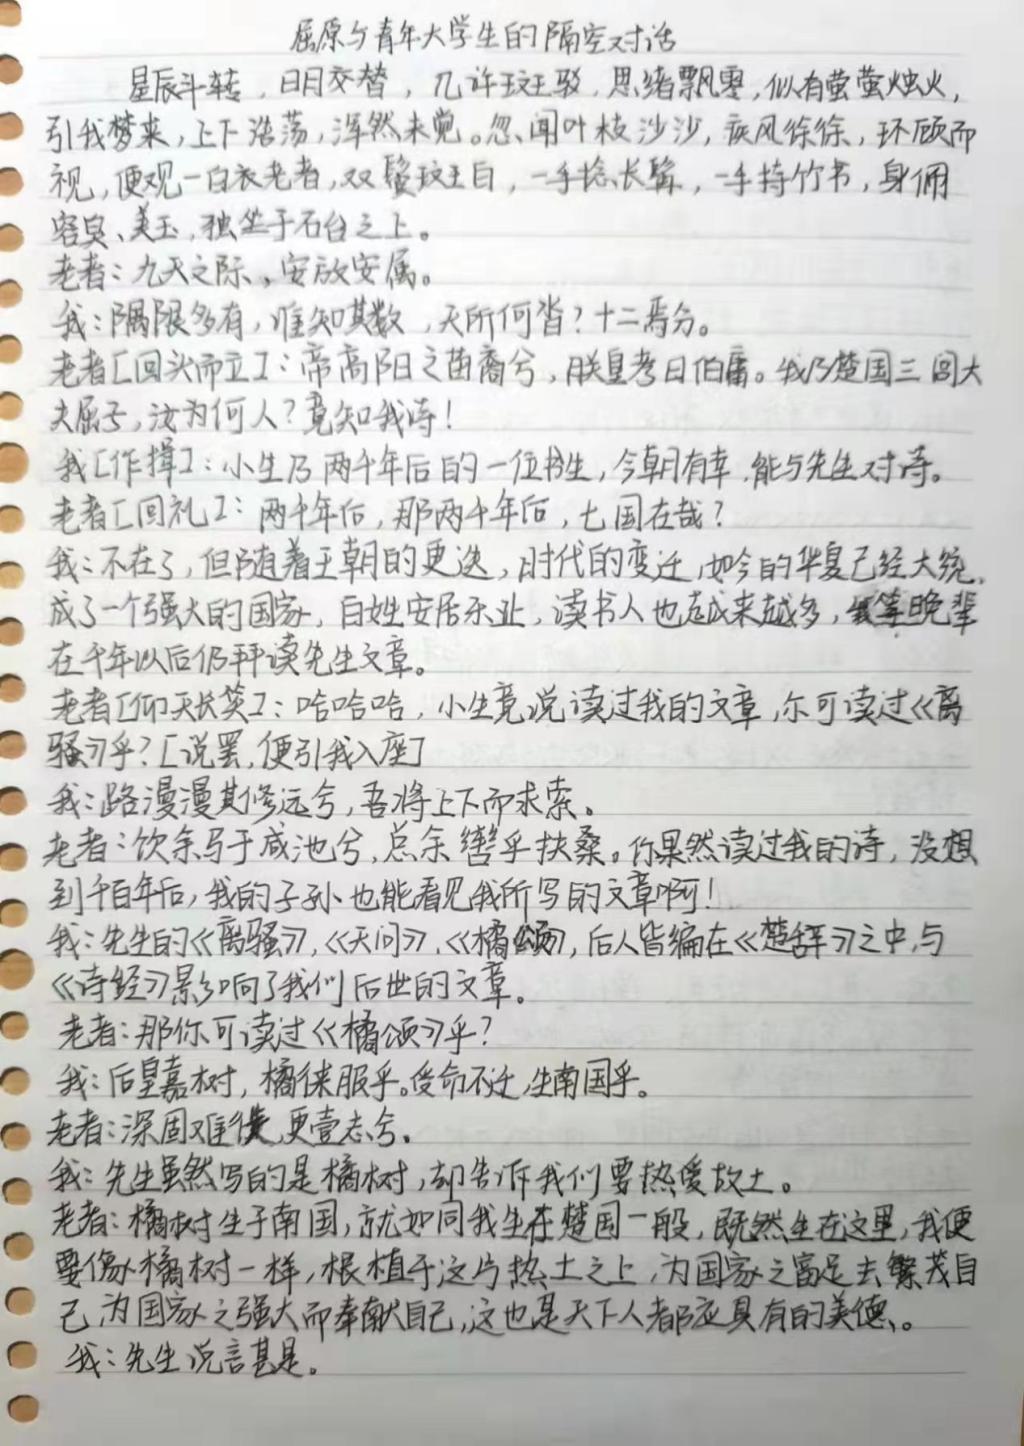 屈原与青年大学生的隔空对话
星辰斗转，日月交替，几许斑驳，思绪飘零，似有萤萤烛火，
引我梦来，上下浩荡，浑然未觉。忽闻叶枝沙沙，疾风徐徐，环顾而
视，便观一白衣老者，双鬓斑白，一手捻长髯，一手持竹书，身佣
容臭、美玉，独坐于石台之上。
老者：九天之际，安放安属。
我：隅隈多有，谁知其数，天所何沓？十二焉分。
老者[回头而立]：帝高阳之苗裔兮，朕皇考曰伯庸。我乃楚国三闾大
夫屈子，汝为何人？竟知我诗！
我[作揖]：小生乃两千年后的一位书生，今朝有幸，能与先生对诗。
老者[回礼]：两千年后，那两千年后，七国在哉？
我：不在了，但随着王朝的更迭，时代的变迁，如今的华夏已经大统，
成了一个强大的国家，百姓安居乐业，读书人也越来越多，我等晚辈
在千年以后仍拜读先生文章。
老者[仰天长笑]：哈哈哈，小生竟说读过我的文章，尔可读过《离
骚》乎？[说罢，便引我入座]
我：路漫漫其修远兮，吾将上下而求索。
老者：饮余马于咸池兮，总余辔乎扶桑。你果然读过我的诗，没想
到千百年后，我的子孙也能看见我所写的文章啊！
我：先生的《离骚》，《天问》，《橘颂》，后人皆编在《楚辞》之中，与
《诗经》影响了我们后世的文章。
老者：那你可读过《橘颂》乎？
我：后皇嘉树，橘徕服乎。受命不迁，生南国乎。
老者：深固难徙，更壹志兮。
我：先生虽然写的是橘树，却告诉我们要热爱故土。
老者：橘树生于南国，就如同我生在楚国一般，既然生在这里，我便
要像橘树一样，根植于这片热土之上，为国家之富足去繁茂自
己，为国家之强大而奉献自己，这也是天下人都应具有的美德。
我：先生说言甚是。